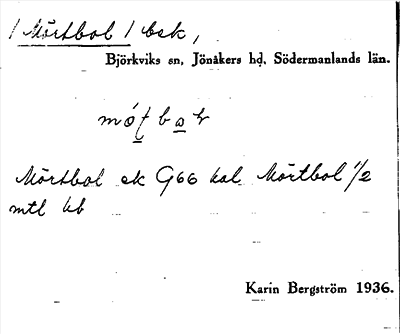 / Mörtbol / bsk,
Björkviks sn, Jönåkers hd, Södermanlands län.
Mörtbol ek G66 kal Mörtbol 1/2
mtl kb
Karin Bergström 1936.